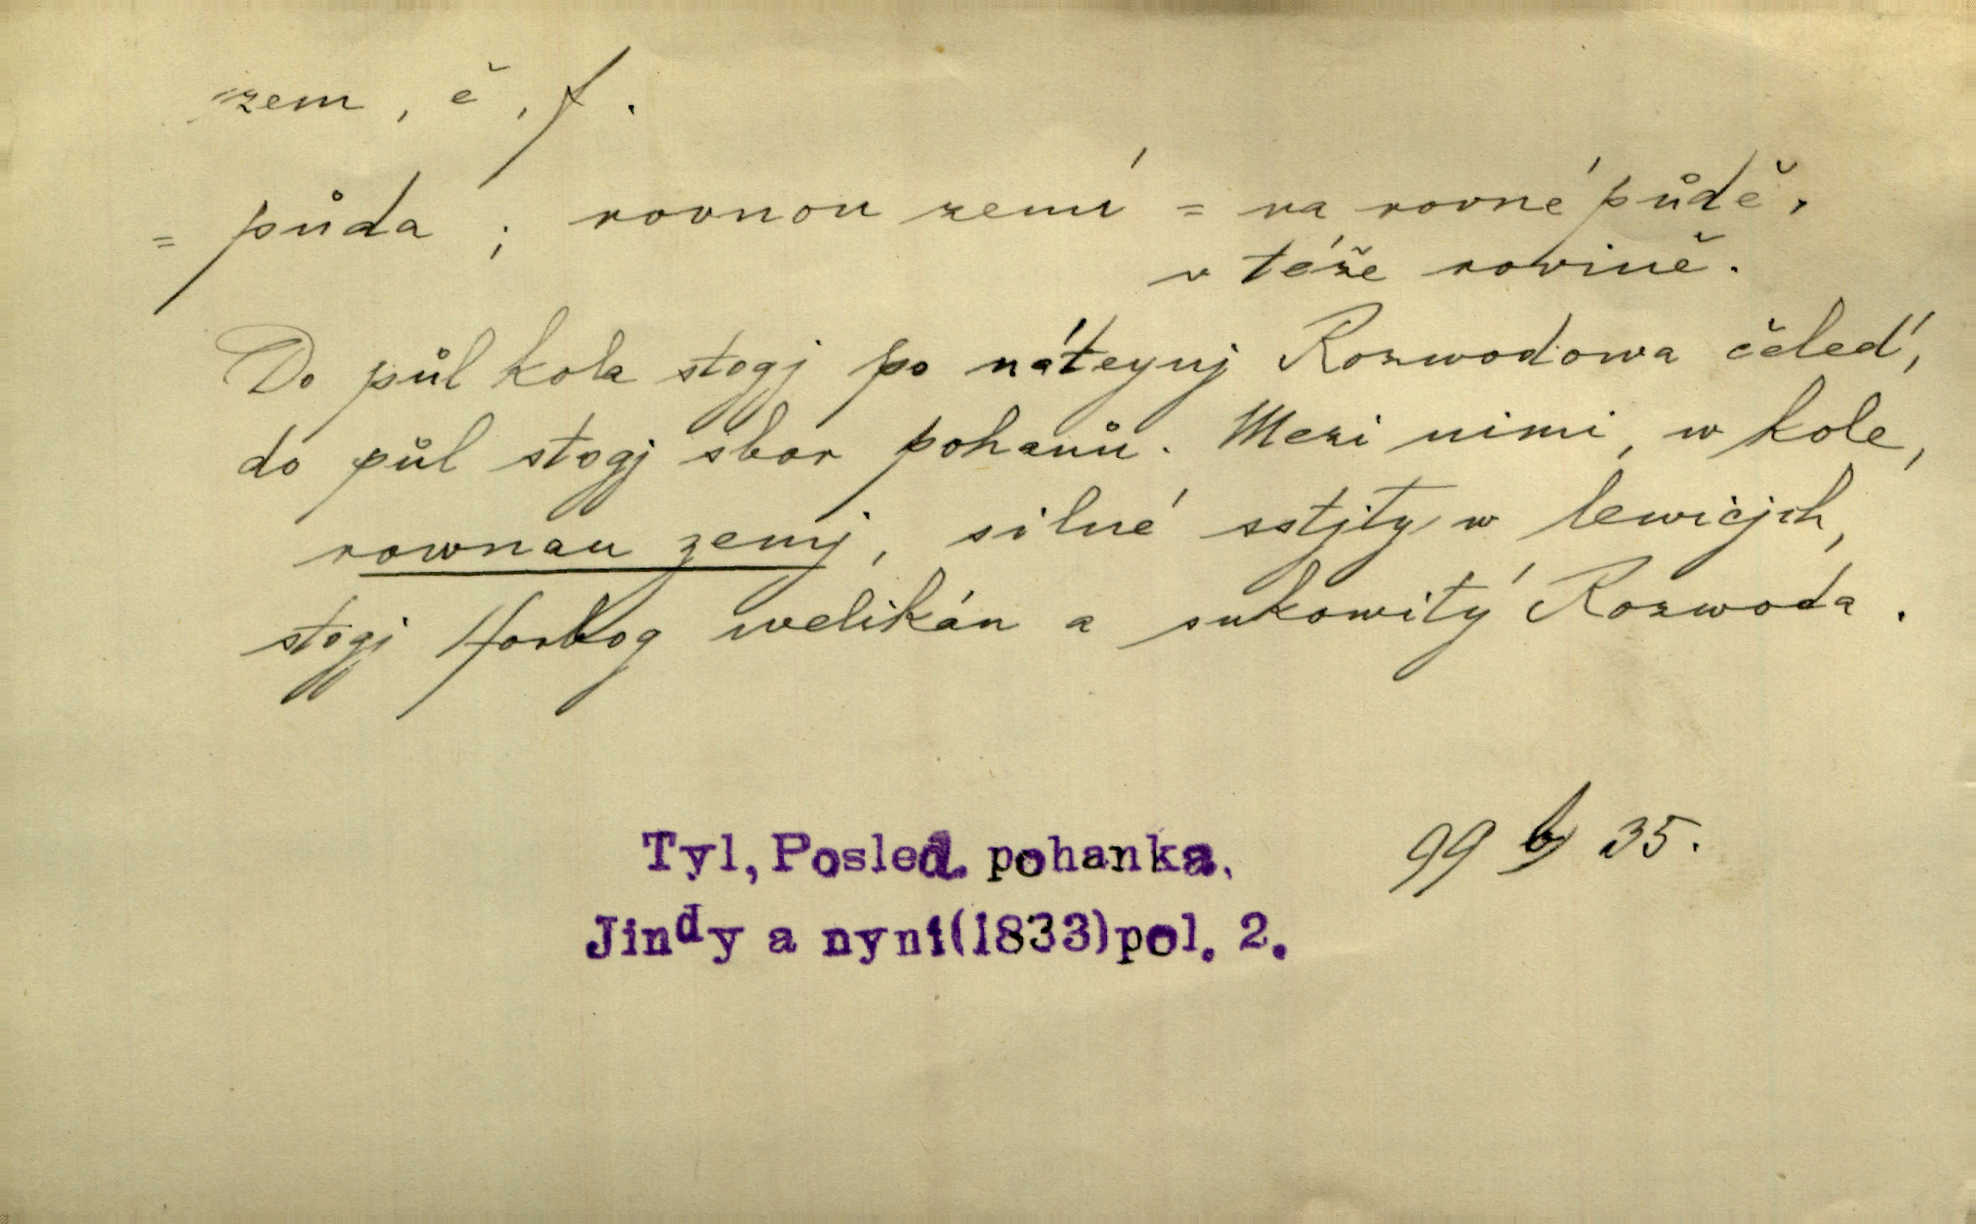 zem, ě, f.
= půda ; rovnou zemí = na rovné půdě,
v téže rovině.
Do půl kola stogj po Rozwodowa čeleď,
do půl stogj sbor pohanů. Mezi nimi, w kole,
rownau zemj, silné sstjty w lewicjch,
stogj Horbog welikán a sukowitý Rozwoda.
Tyl, Posled. pohanka.
99 b 35.
Jindy a nyní(1833)pol. 2.